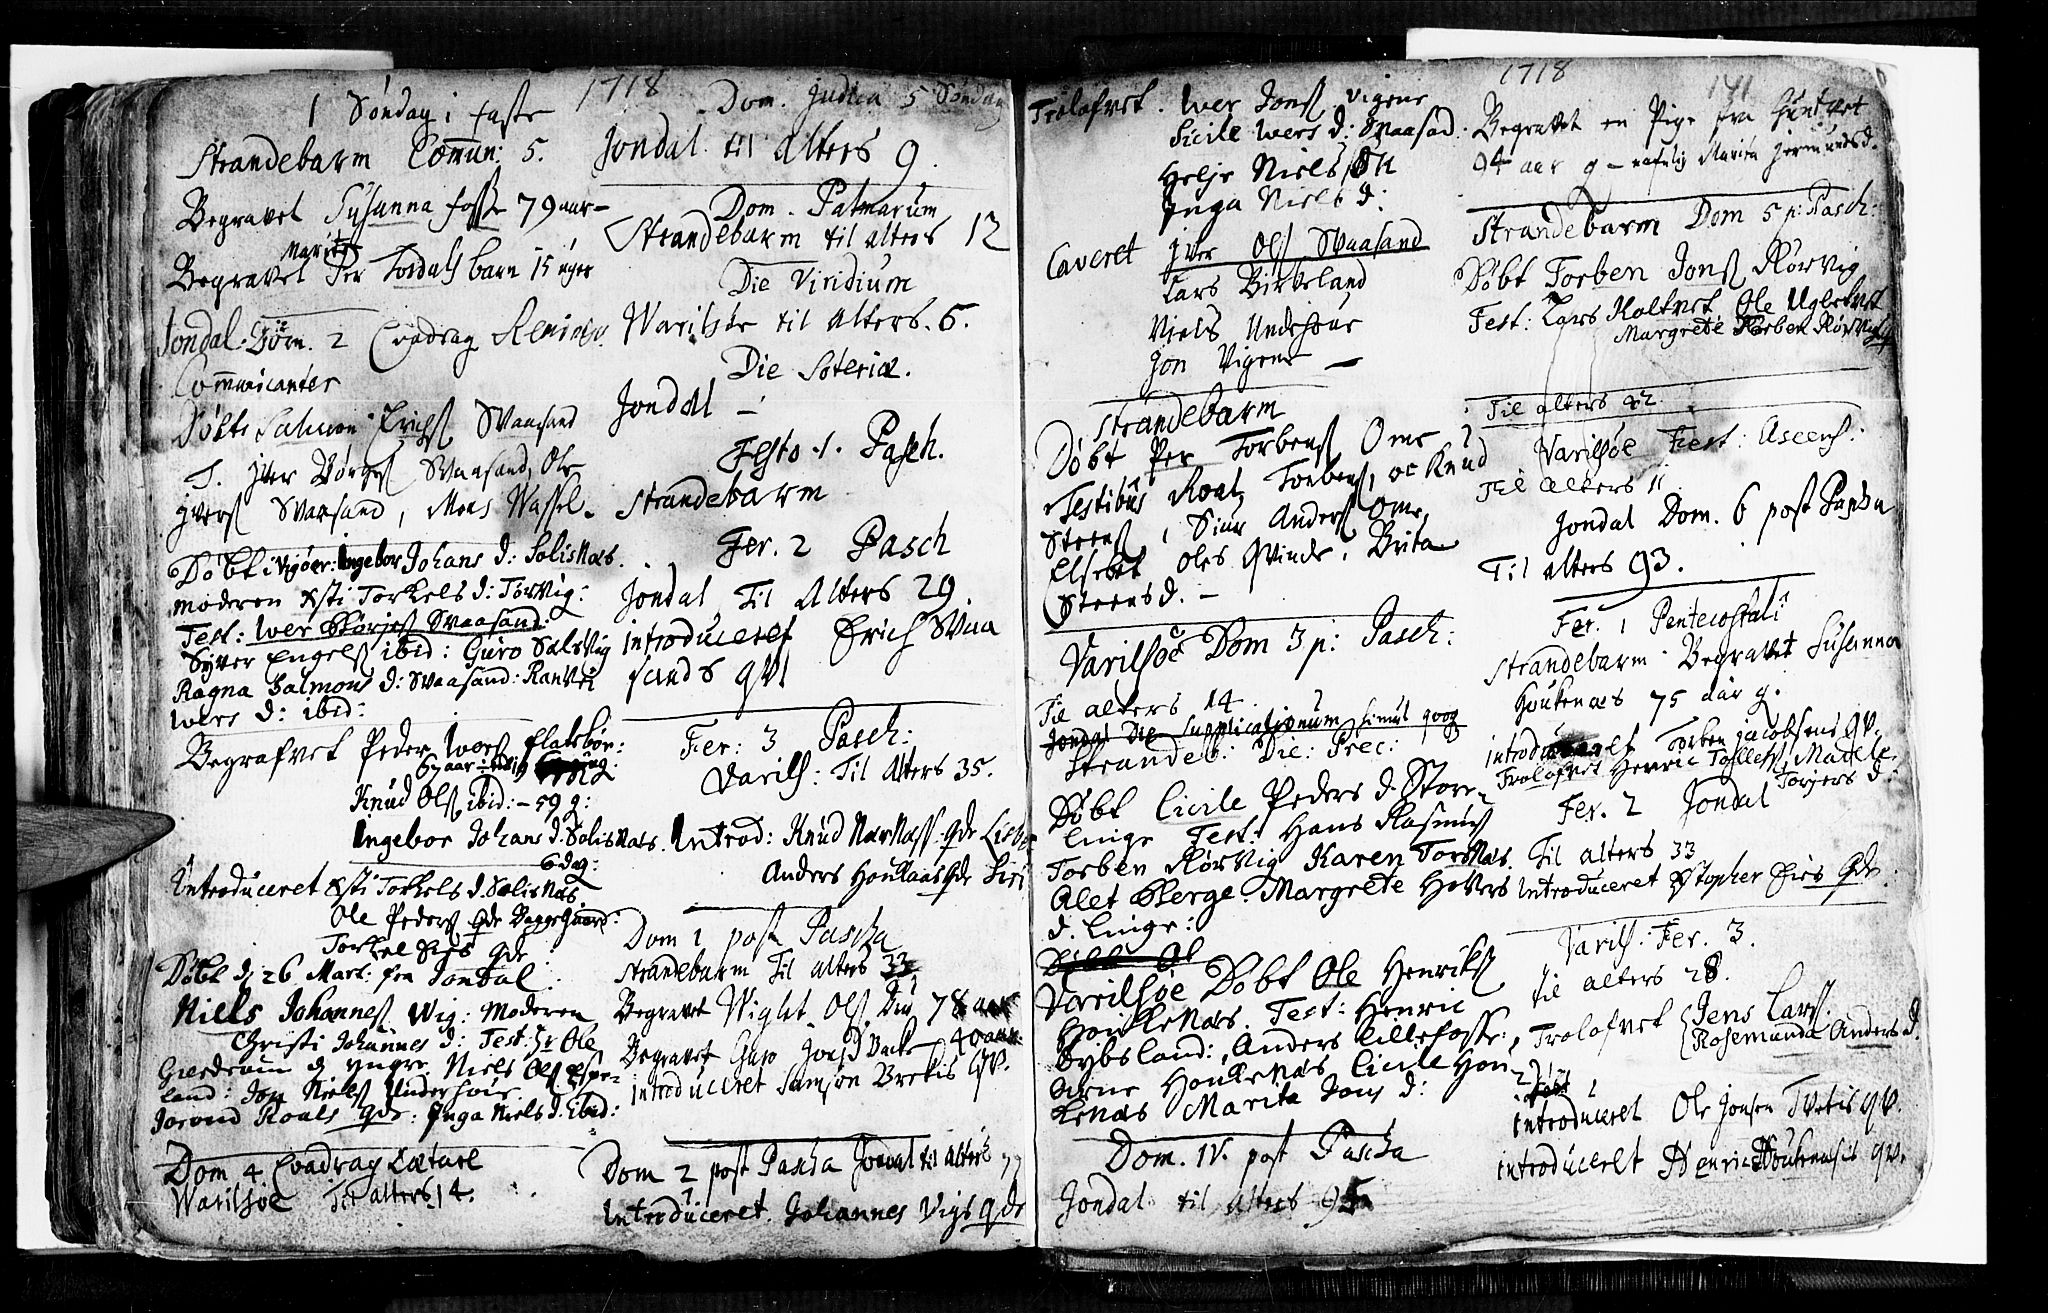 1718
1 Søndag i faste
Strandebarm Commun: 5.
Begravet Susanna fosse 79 aar
Marite
Begravet Per Tordals barn 15 uger
Jondal. Dom. 2 Qvadrag
Communicanter
Døbt Salmon Erichs Svaasand
T. Jver Børges Svaasand, Ole
Jvers Svaasand, Mons Vassel.
Døbt i Vigøer: Ingebor Johans d: Solisnæs.
moderen Xsti Torkels d: Torvig:
Test: Iver Børjes Svaasand:
Syver Engels ibid: Guro Solsvig
Ragna Salmons d: Svaasand: Ranvei
Ivers d: ibid:
Begrafvet Peder Ivers Flatebøe:
67 aar
Knud Ols ibid: - 59 g:
Ingebor Johans d: Solisnæs.
6 dag:
Introduceret Xsti Torkels d. Solisnæs
Ole Peders Qde Baggegaard:
Torkel Qde
Døbt d 26 Mart: fra Jondal:
Niells Johannes Vig: Moderen
Christi Johannes d: Test: Hr Ole
d yngre Niels Ols Espe-
land: Jon Niels Underhoue
Jorond Roals Qde: Inga Niels d. ibid:
Dom. 4. Qvadrag Lætare
Варilsøe Til alters 14.
Dom. Judica 5 Søndag
Jondal til alters 9.
Dom. Palmarum
Strandebarm til alters 12
Die Viridium
Varilsøe til alters. 6.
Die Soteriæ.
Jondal -
Festo. 1. Pasch.
Strandebarm
Fer. 2 Pasch
Jondal Til Alters 29.
introduceret Erich Svaa
sands qvi
Fer: 3 Pasch:
Varils: Til Alters 35.
Introd: Knud Nernæs Qde
Anders Houkaas Qde Siri
Dom 1 post Pascha
Strandebarm Til alters 33
Begravet Ols 78 aar
Begravet Guro Jons d 40 aar
introduceret Samson Brekis QV.
Dom 2 post Pascha Jondal til alters
Introduceret. Johannes Vigs Qde
1718
141
Trolofvet. Iver Jons Vigene
Sicile Ivers d: Svaasad:
Helje Niels
Inga Niels d:
Caveret Jver Ols Svaasand
Lars Birkeland
Niels Undehoue
Jon Vigene
Strandebarm
Døbt Per Torbens Ome
Testibus Roal Torbens, oc Knud
Steens, Siur Anders Ome,
Elsebet Oles Qvinde, Brita
Steens d. -
Varilsøe Dom 3 p: Pasch:
Til alters 14.
Jondal Die Supplicationum simul
Strandeb: Die: Prec:
Døbt Cicile Peders d. Store-
linge Test: Hans Rasmus
Torben Rørvig Karen Torsnæs.
Alet Berge. Margrete Hovers
d. Linge:
Varilsøe Døbt Ole Henriks
Houkenæs. Test: Henric
Sybsland:, Anders Lillefosse:,
Arne Houkenæs Cicile Hou-
kenæs Marita Jons d:
Dom. IV. post Pascha
Jondal til alters
Begravet en Pige fra
94 aar g - nafnlig Marita Jermunds d.
Strandebarm Dom 5 p: Pasch:
Døbt Torben Jons Rørvig
Test: Lars Holtvet Ole Ugletvet
Margrete Torben Rørvig
Til alters 42.
Varilsøe Fest: Ascens:
Til Alters 11
Jondal Dom. 6 post Pascha
Til alters 93.
Fer. 1 Pentecostali
Strandebarm. Begravet Susanna
Houkenæs 75 aar g.
introduceret Torben Jacobsens qv.
Trolofvet Henric
Torjers d:
Fer. 2 Jondal
Til alters 33
Introduceret Xstopher Eies Qde.
Varils: Fer. 3.
til alters 28.
Trolofvet Jens Lars.
Rosemunda Anders d.
introduceret Ole Jonsen Tvetis qv.
introduceret Henric Houkenæsis qv.